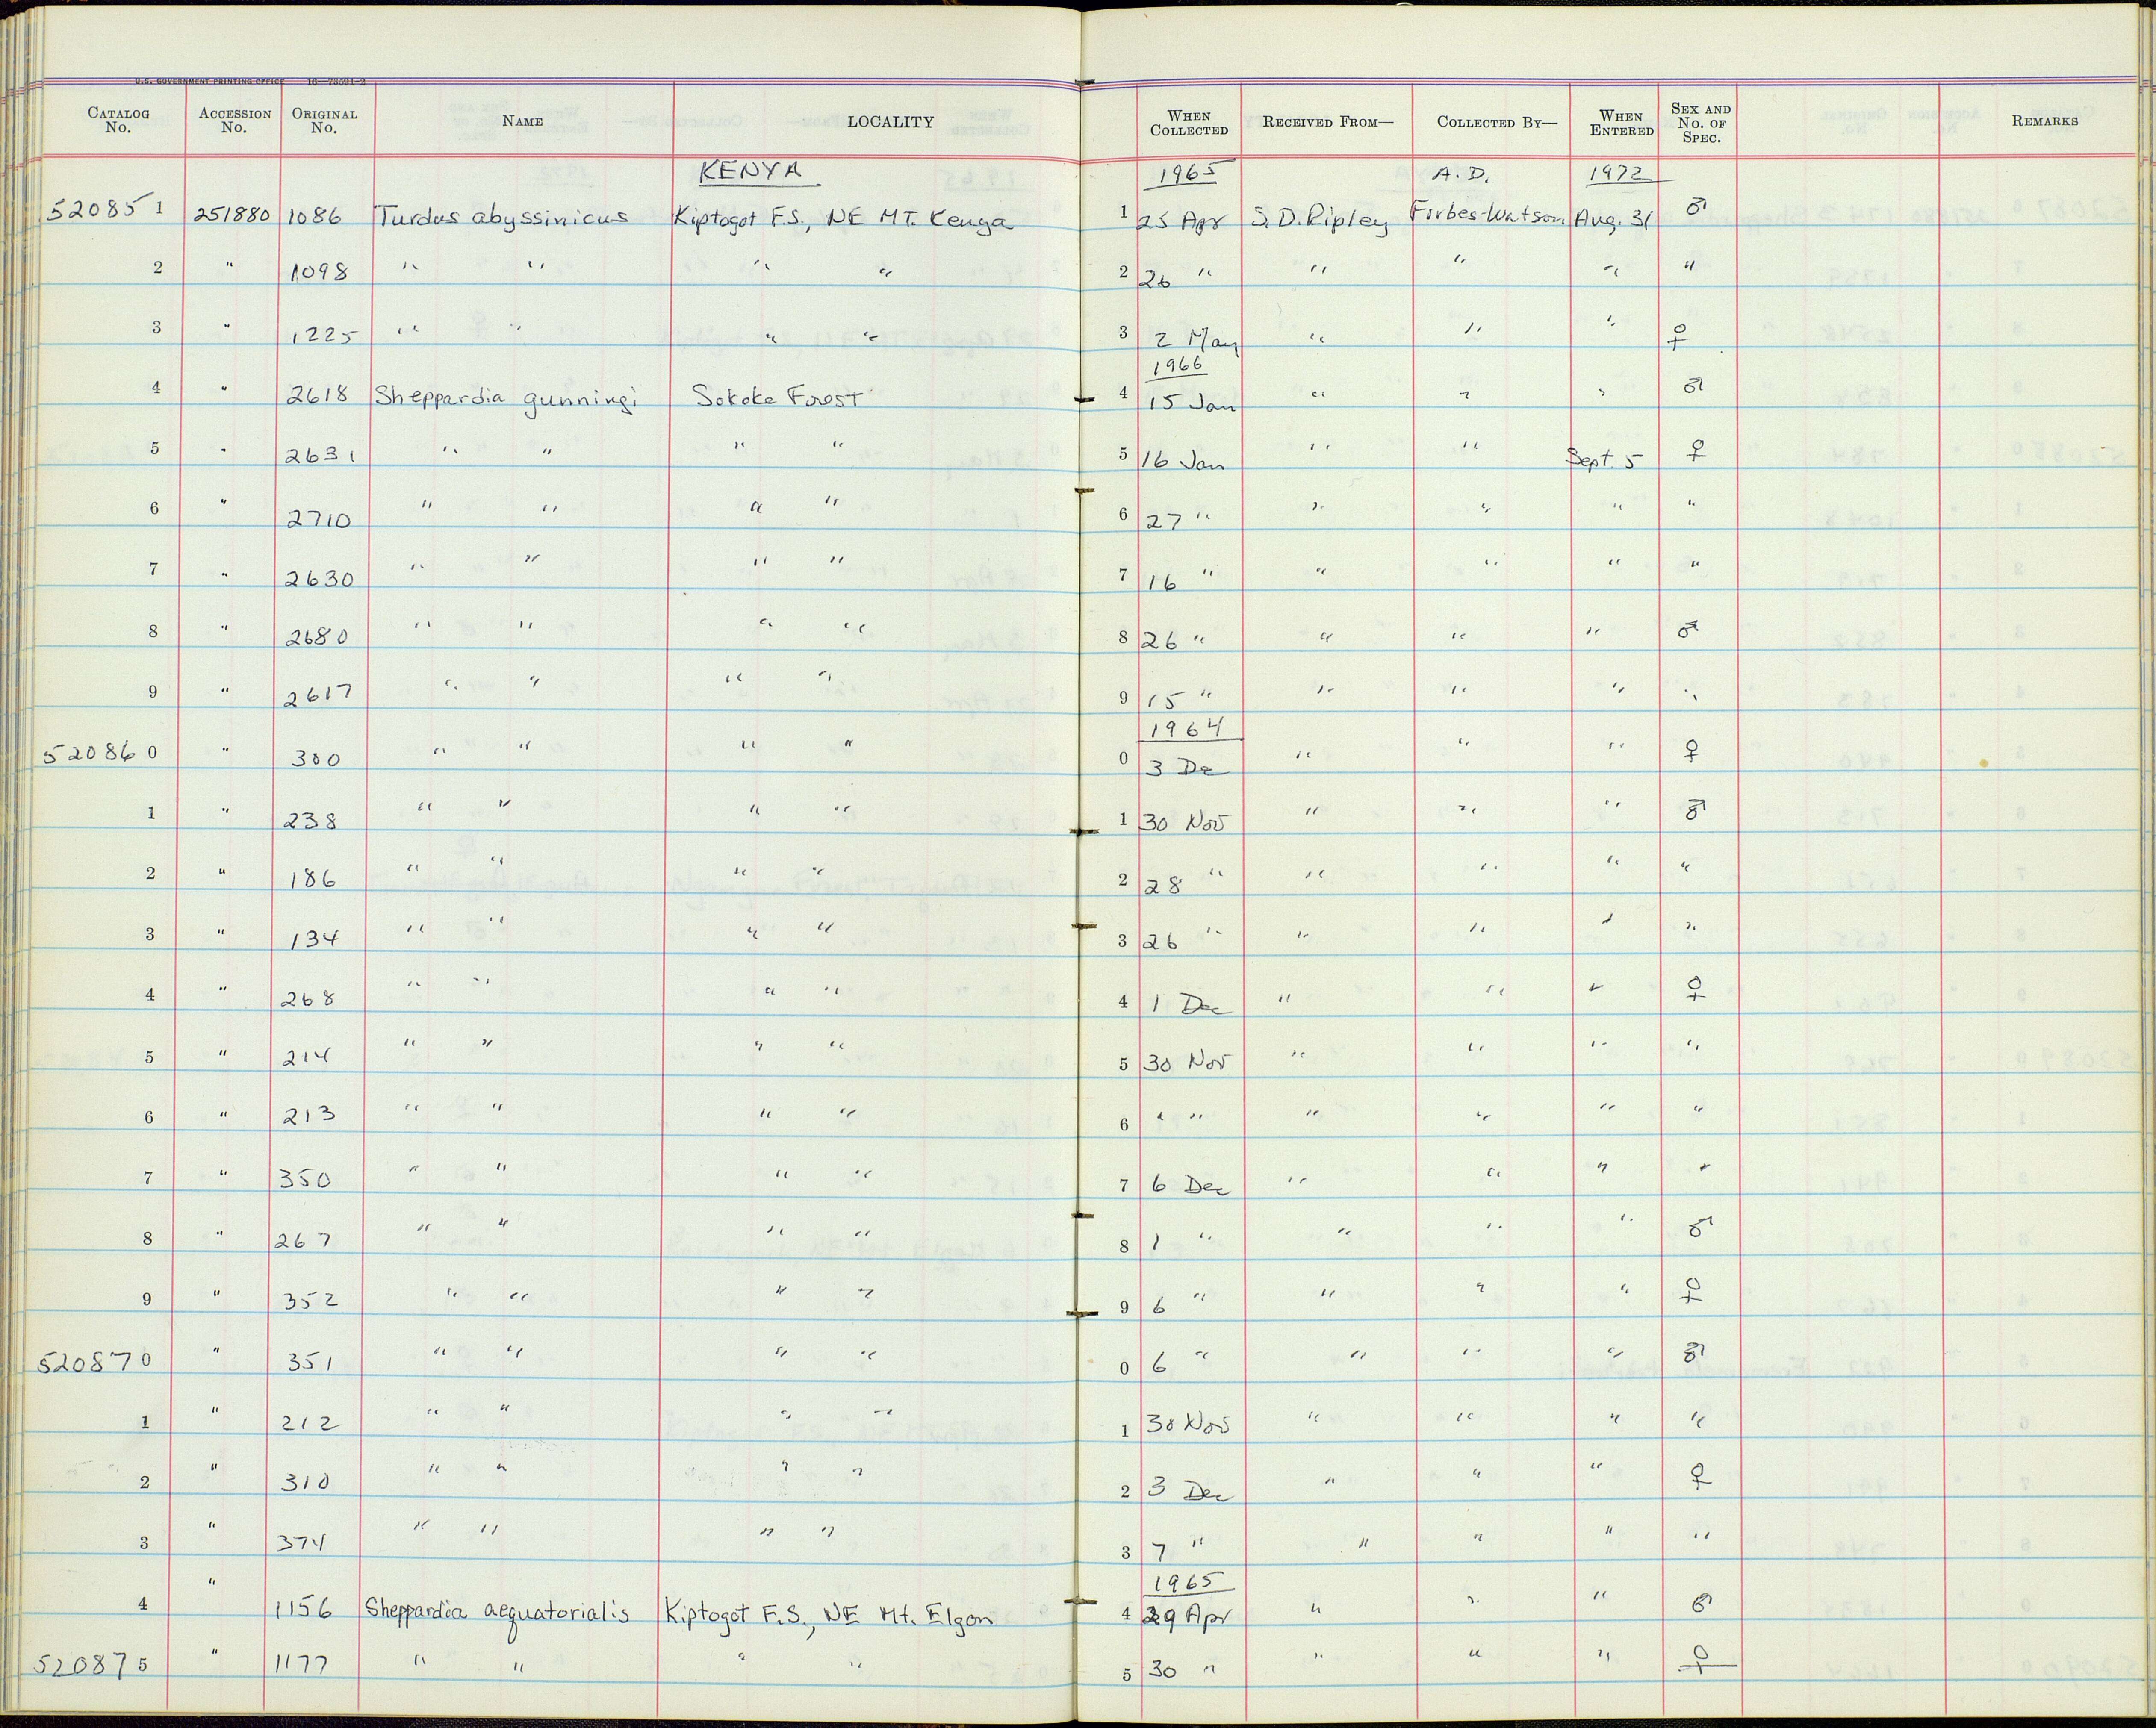 U.S. GOVERNMENT PRINTING OFFICE 16—73591-2
CATALOG No. ACCESSION No. ORIGINAL No. NAME LOCALITY WHEN COLLECTED RECEIVED FROM— COLLECTED BY— WHEN ENTERED SEX AND No. OF SPEC. REMARKS
KENYA 1965 A.D. 1972
520851 251880 1086 Turdus abyssinicus Kiptogot F.S., NE MT. Kenya 1 25 Apr S.D. Ripley Forbes-Watson Aug. 31 ♂
2 " 1098 " " " " 2 26 " " " " "
3 " 1225 " " " " 3 2 May " " " ♀
1966
4 " 2618 Sheppardia gunningi Sokoke Forest 4 15 Jan " " " ♂
5 " 2631 " " " " 5 16 Jan " " Sept. 5 ♀
6 " 2710 " " " " 6 27 " " " " "
7 " 2630 " " " " 7 16 " " " " "
8 " 2680 " " " " 8 26 " " " " ♂
9 " 2617 " " " " 9 15 " " " " "
1964
520860 " 300 " " " " 0 3 De " " " ♀
1 " 238 " " " " 1 30 Nov " " " ♂
2 " 186 " " " " 2 28 " " " " "
3 " 134 " " " " 3 26 " " " " "
4 " 268 " " " " 4 1 Dec " " " ♀
5 " 214 " " " " 5 30 Nov " " " "
6 " 213 " " " " 6 " " " " " "
7 " 350 " " " " 7 6 Dec " " " "
8 " 267 " " " " 8 1 " " " " ♂
9 " 352 " " " " 9 6 " " " " ♀
520870 " 351 " " " " 0 6 " " " " ♂
1 " 212 " " " " 1 30 Nov " " " "
2 " 310 " " " " 2 3 Dec " " " ♀
3 " 374 " " " " 3 7 " " " " "
1965
4 " 1156 Sheppardia aequatorialis Kiptogot F.S., NE Mt. Elgon 4 29 Apr " " " ♂
520875 " 1177 " " " " 5 30 " " " " ♀